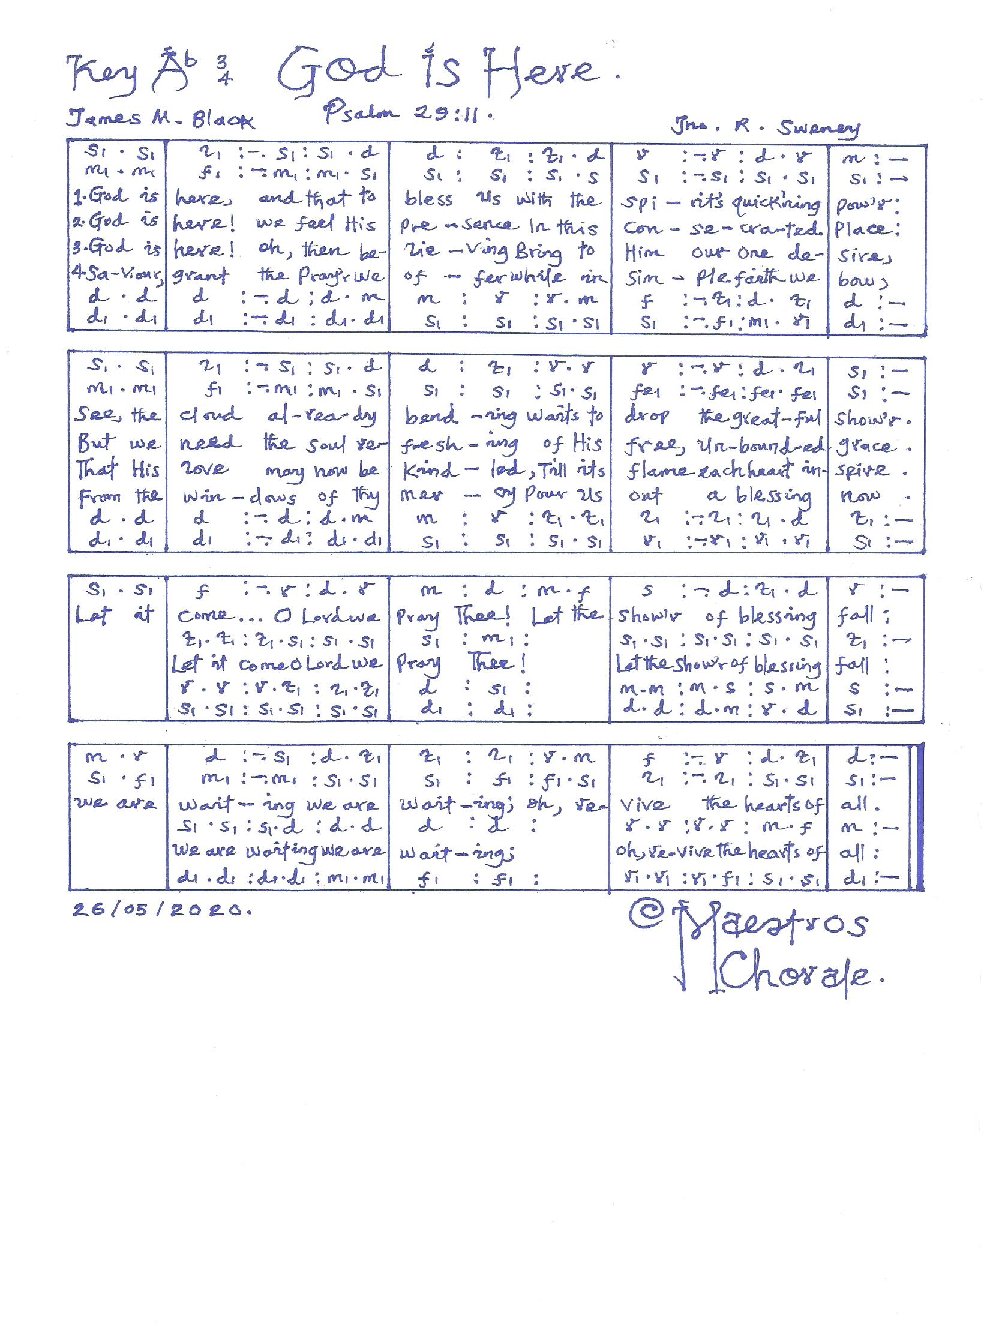 Key Ab 3/4 God is Here.
James M. Black Psalm 29:11. Jno. R. Sweney
s₁ . s₁ | l₁ :-. s₁ : s₁ . d | d : t₁ : t₁ . d | r :-. r : d . r | m : —
m₁ . m₁ | f₁ :-. m₁ : m₁ . s₁ | s₁ : s₁ : s₁ . s | s₁ :-. s₁ : s₁ . s₁ | s₁ : —
1. God is here, and that to bless us with the Spi - rit's quick'ning pow'r:
2. God is here! we feel His Pre - sence In this Con - se - cra - ted Place:
3. God is here! oh, then be- lie - ving Bring to Him our one de- sire,
4. Sa-viour, grant the Pray'r we of - fer while in Sim - ple faith we bow,
d . d | d :-. d : d . m | m : r : r . m | f :-. t₁ : d . t₁ | d : —
d₁ . d₁ | d₁ :-. d₁ : d₁ . d₁ | s₁ : s₁ : s₁ . s₁ | s₁ :-. f₁ : m₁ . r₁ | d₁ : —
s₁ . s₁ | l₁ :-. s₁ : s₁ . d | d : t₁ : r . r | r :-. r : d . l₁ | s₁ : —
m₁ . m₁ | f₁ :-. m₁ : m₁ . s₁ | s₁ : s₁ : s₁ . s₁ | fe₁ :-. fe₁ : fe₁ . fe₁ | s₁ : —
See, the cloud al-rea-dy bend - ing wants to drop the great-ful show'r.
But we need the soul re- fresh - ing of His free, Un-bound-ed grace.
That His love may now be Kind - led, Till its flame each heart in- spire.
From the win - dows of thy mer - cy Pour Us out a blessing now .
d . d | d :-. d : d . m | m : r : t₁ . t₁ | l₁ :-. l₁ : l₁ . d | t₁ : —
d₁ . d₁ | d₁ :-. d₁ : d₁ . d₁ | s₁ : s₁ : s₁ . s₁ | r₁ :-. r₁ : r₁ . r₁ | s₁ : —
s₁ . s₁ | f :-. r : d . r | m : d : m . f | s :-. d : t₁ . d | r : —
Let it come... O Lord we Pray Thee! Let the Show'r of blessing fall ;
t₁ . t₁ : t₁ . s₁ : s₁ . s₁ | s₁ : m₁ : | s₁ . s₁ : s₁ . s₁ : s₁ . s₁ | t₁ : —
Let it come O Lord we Pray Thee! Let the Show'r of blessing fall :
r . r : r . t₁ : t₁ . t₁ | d : s₁ : | m . m : m . s : s . m | s : —
s₁ . s₁ : s₁ . s₁ : s₁ . s₁ | d₁ : d₁ : | d . d : d . m : r . d | s₁ : —
m . r | d :-. s₁ : d . t₁ | t₁ : l₁ : r . m | f :-. r : d . t₁ | d : —
s₁ . f₁ | m₁ :-. m₁ : s₁ . s₁ | s₁ : f₁ : f₁ . s₁ | l₁ :-. l₁ : s₁ . s₁ | s₁ : —
We are wait - ing we are wait - ing; oh, re- vive the hearts of all.
s₁ . s₁ : s₁ . d : d . d | d : d : | r . r : r . r : m . f | m : —
We are waiting we are wait - ing; Oh, re-vive the hearts of all :
d₁ . d₁ : d₁ . d₁ : m₁ . m₁ | f₁ : f₁ : | r₁ . r₁ : r₁ . f₁ : s₁ . s₁ | d₁ : —
26/05/2020.
© Maestros
Chorale.